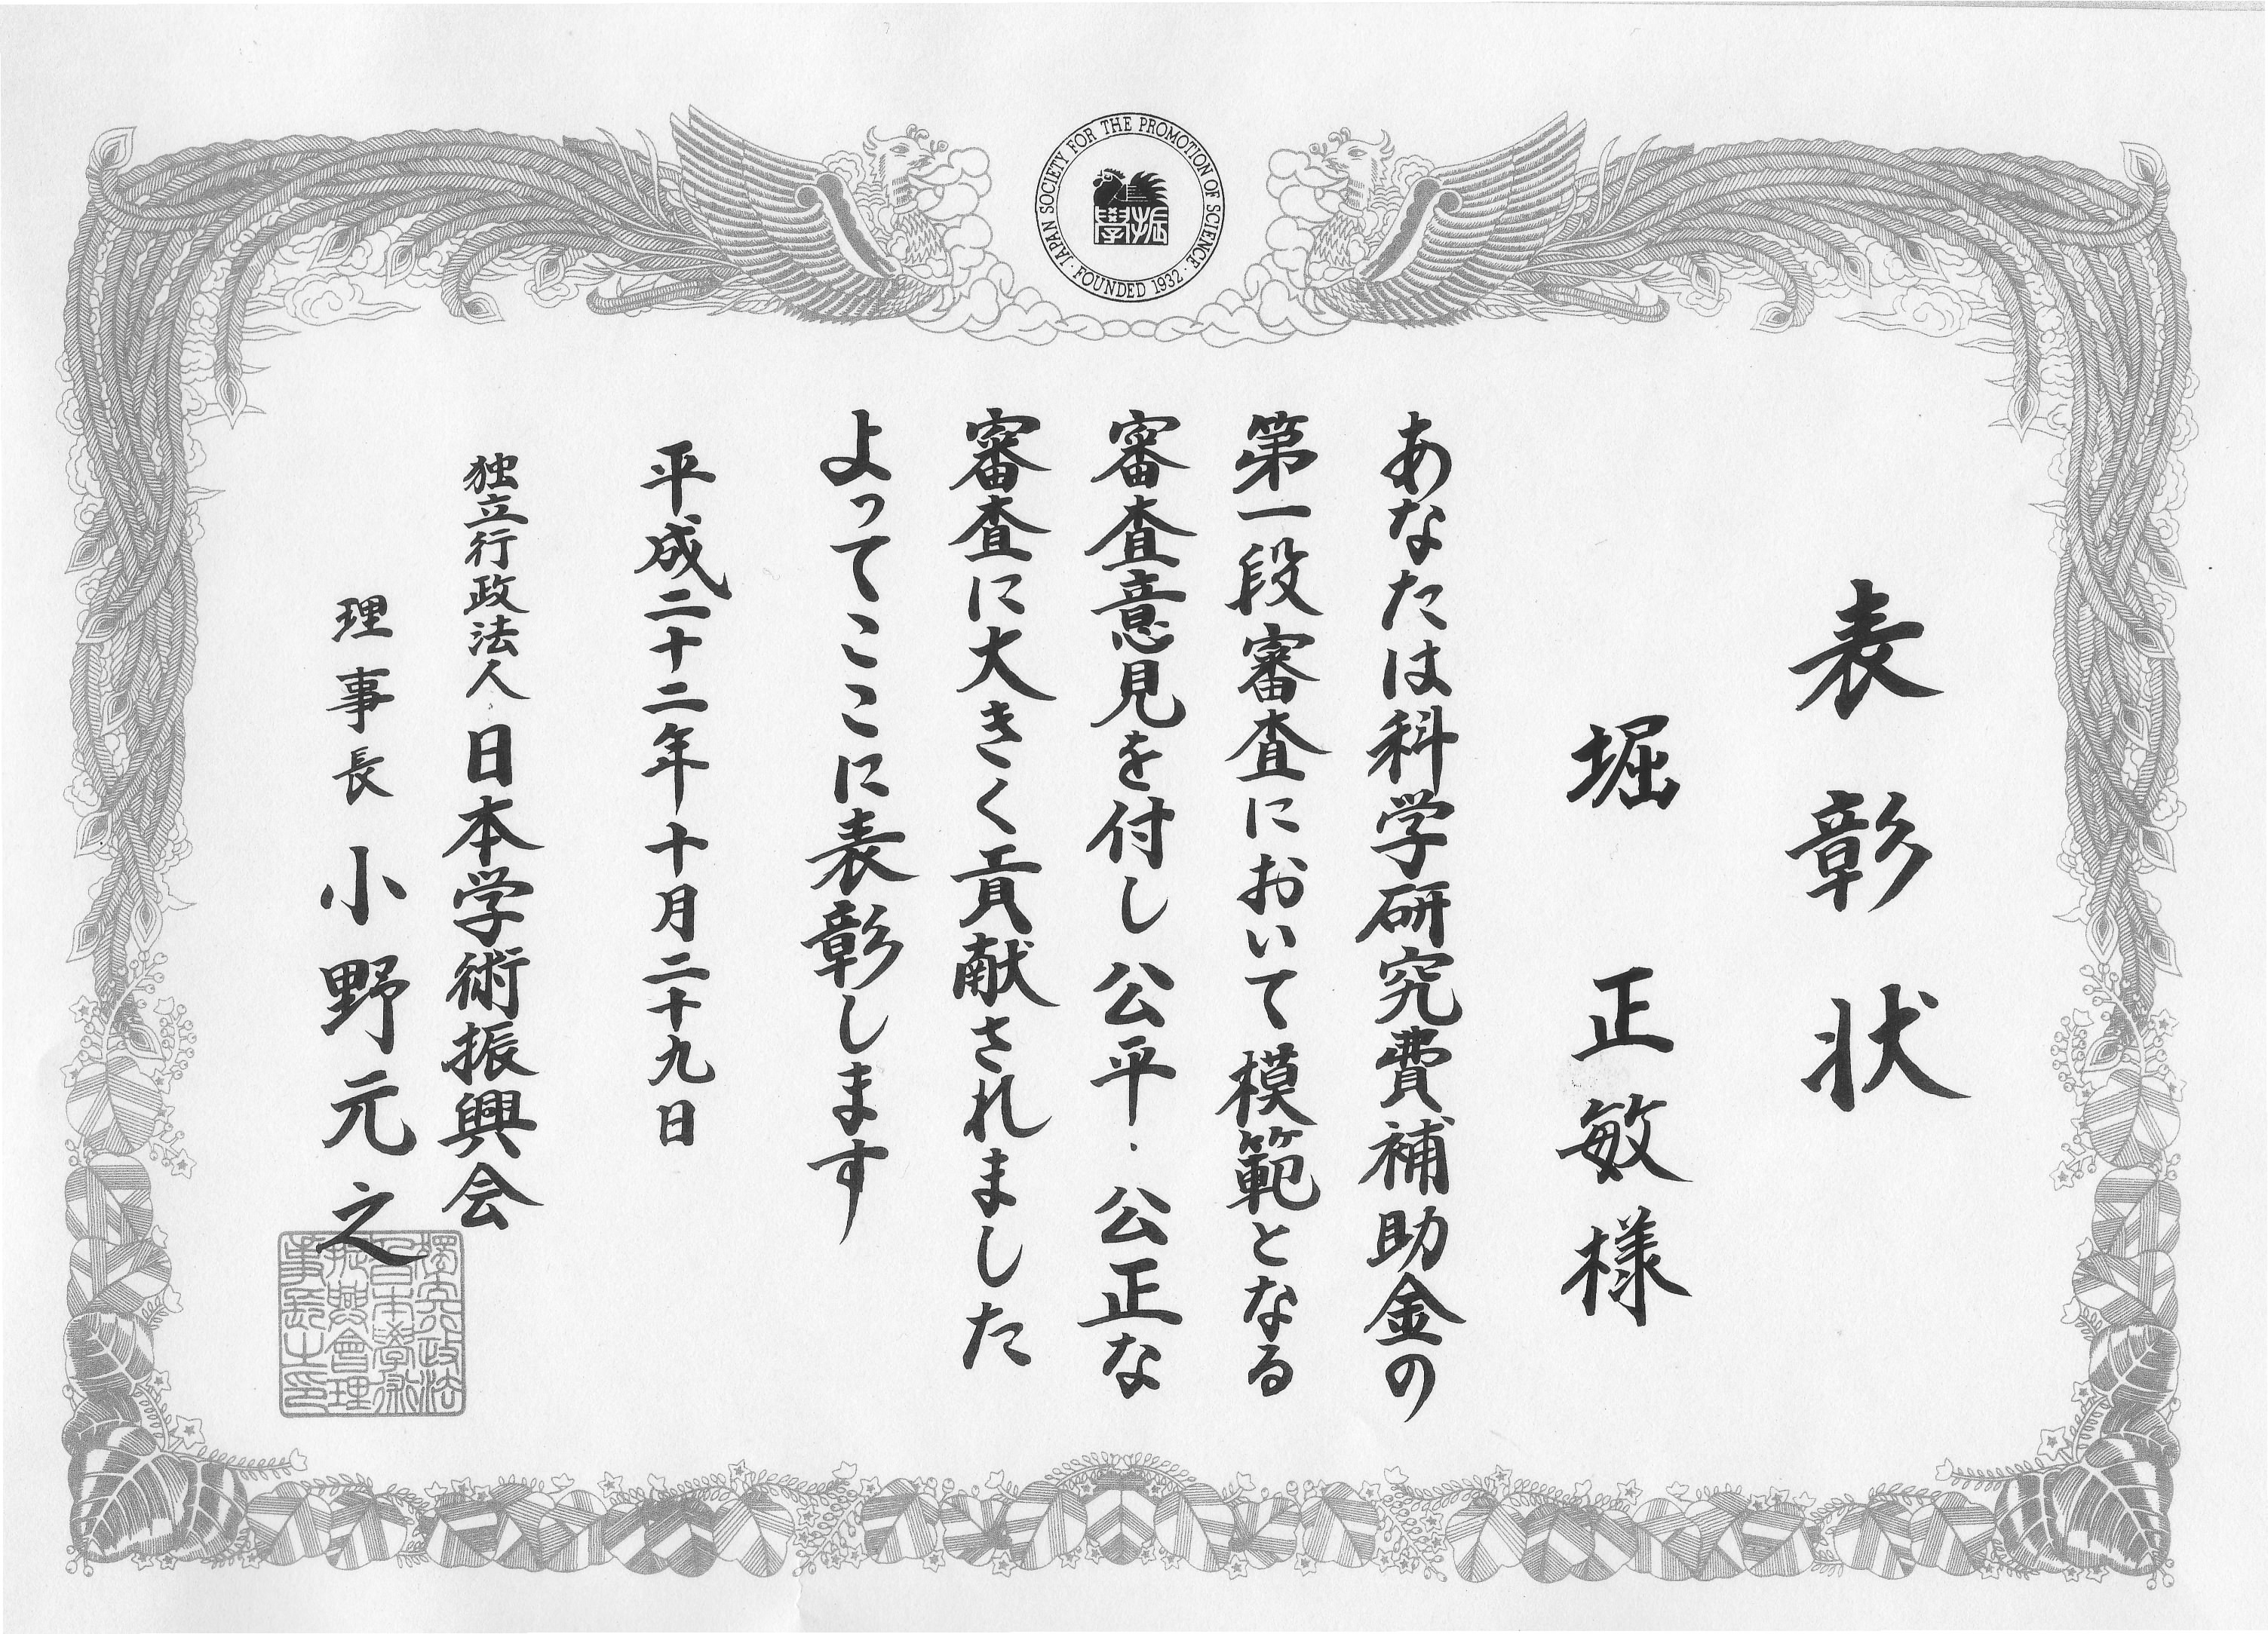 JAPAN SOCIETY FOR THE PROMOTION OF SCIENCE · FOUNDED 1932 ·
振學
表彰状
堀 正敏様
あなたは科学研究費補助金の
第一段審査において模範となる
審査意見を付し公平・公正な
審査に大きく貢献されました
よってここに表彰します
平成二十二年十月二十九日
独立行政法人日本学術振興会
理事長 小野元之